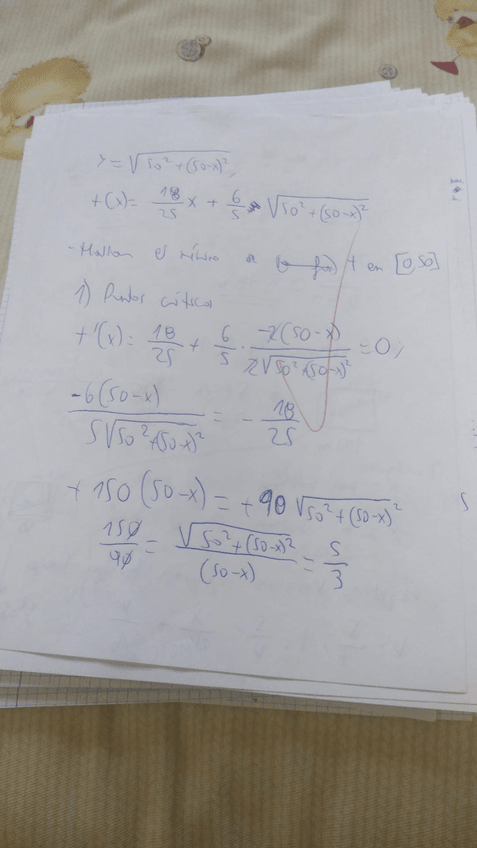 y = √(50² + (50-x)²),
t(x) = 18/25 x + 6/5 √(50² + (50-x)²)
- Hallar el t en [0,50]
1) Puntos críticos
t'(x) = 18/25 + 6/5 · -2(50-x) / 2√(50² + (50-x)²) = 0,
-6(50-x) / 5√(50² + (50-x)²) = - 18/25
+ 150 (50-x) = + 90 √(50² + (50-x)²)
150/90 = √(50² + (50-x)²) / (50-x) = 5/3